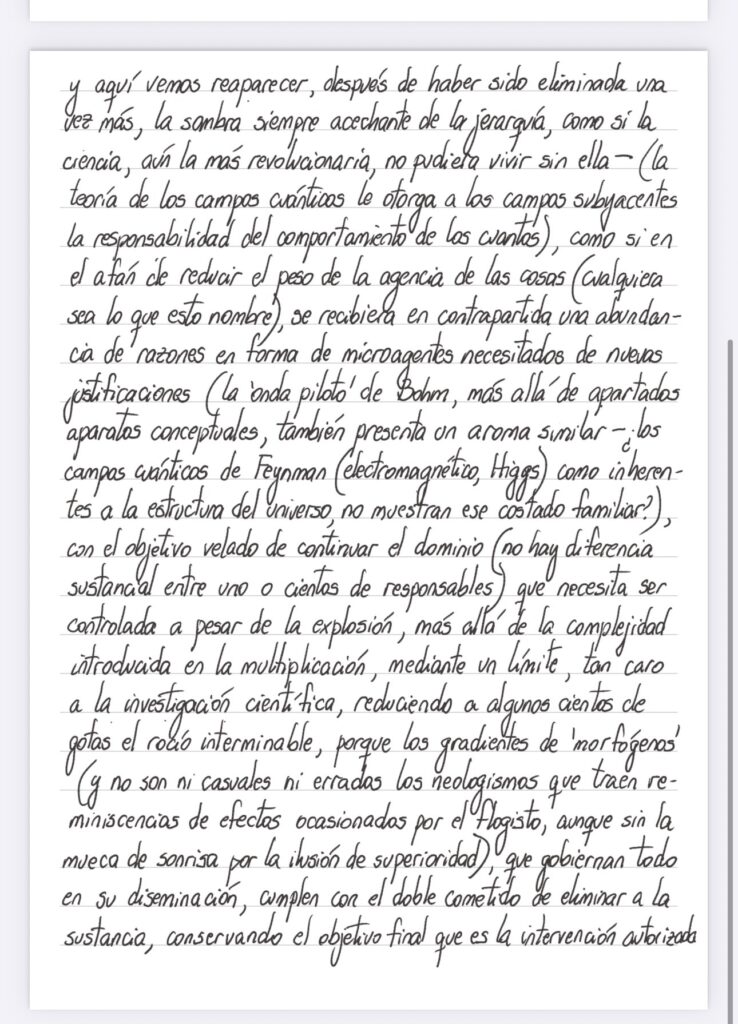 y aquí vemos reaparecer, después de haber sido eliminada una
vez más, la sombra siempre acechante de la jerarquía, como si la
ciencia, aún la más revolucionaria, no pudiera vivir sin ella — (la
teoría de los campos cuánticos le otorga a los campos subyacentes
la responsabilidad del comportamiento de los cuantos), como si en
el afán de reducir el peso de la agencia de las cosas (cualquiera
sea lo que esto nombre), se recibiera en contrapartida una abundan-
cia de razones en forma de microagentes necesitados de nuevas
justificaciones (la 'onda piloto' de Bohm, más allá de apartados
aparatos conceptuales, también presenta un aroma similar — ¿los
campos cuánticos de Feynman (electromagnético, Higgs) como inheren-
tes a la estructura del universo, no muestran ese costado familiar?),
con el objetivo velado de continuar el dominio (no hay diferencia
sustancial entre uno o cientos de responsables) que necesita ser
controlada a pesar de la explosión, más allá de la complejidad
introducida en la multiplicación, mediante un límite, tan caro
a la investigación científica, reduciendo a algunos cientos de
gotas el rocío interminable, porque los gradientes de 'morfógenos'
(y no son ni casuales ni errados los neologismos que traen re-
miniscencias de efectos ocasionados por el flogisto, aunque sin la
mueca de sonrisa por la ilusión de superioridad), que gobiernan todo
en su diseminación, cumplen con el doble cometido de eliminar a la
sustancia, conservando el objetivo final que es la intervención autorizada